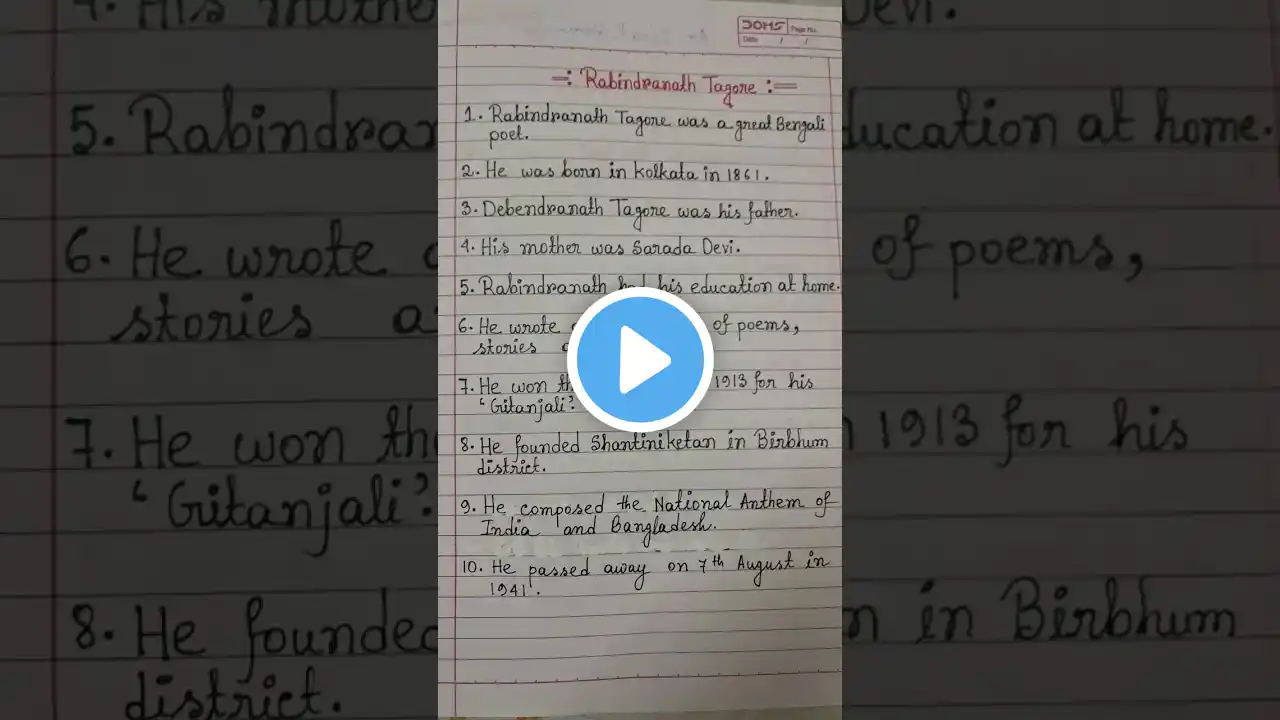 DOMS Page No.
Date / /
Rabindranath Tagore
1. Rabindranath Tagore was a great Bengali
poet.
2. He was born in Kolkata in 1861.
3. Debendranath Tagore was his father.
4. His mother was Sarada Devi.
5. Rabindranath had his education at home.
6. He wrote of poems,
stories
7. He won 1913 for his
'Gitanjali'.
8. He founded Shantiniketan in Birbhum
district.
9. He composed the National Anthem of
India and Bangladesh.
10. He passed away on 7th August in
1941.
4. His Devi.
5. at home.
6. He wrote of poems,
stories
7. He won 1913 for his
'Gitanjali'.
8. He in Birbhum
district.